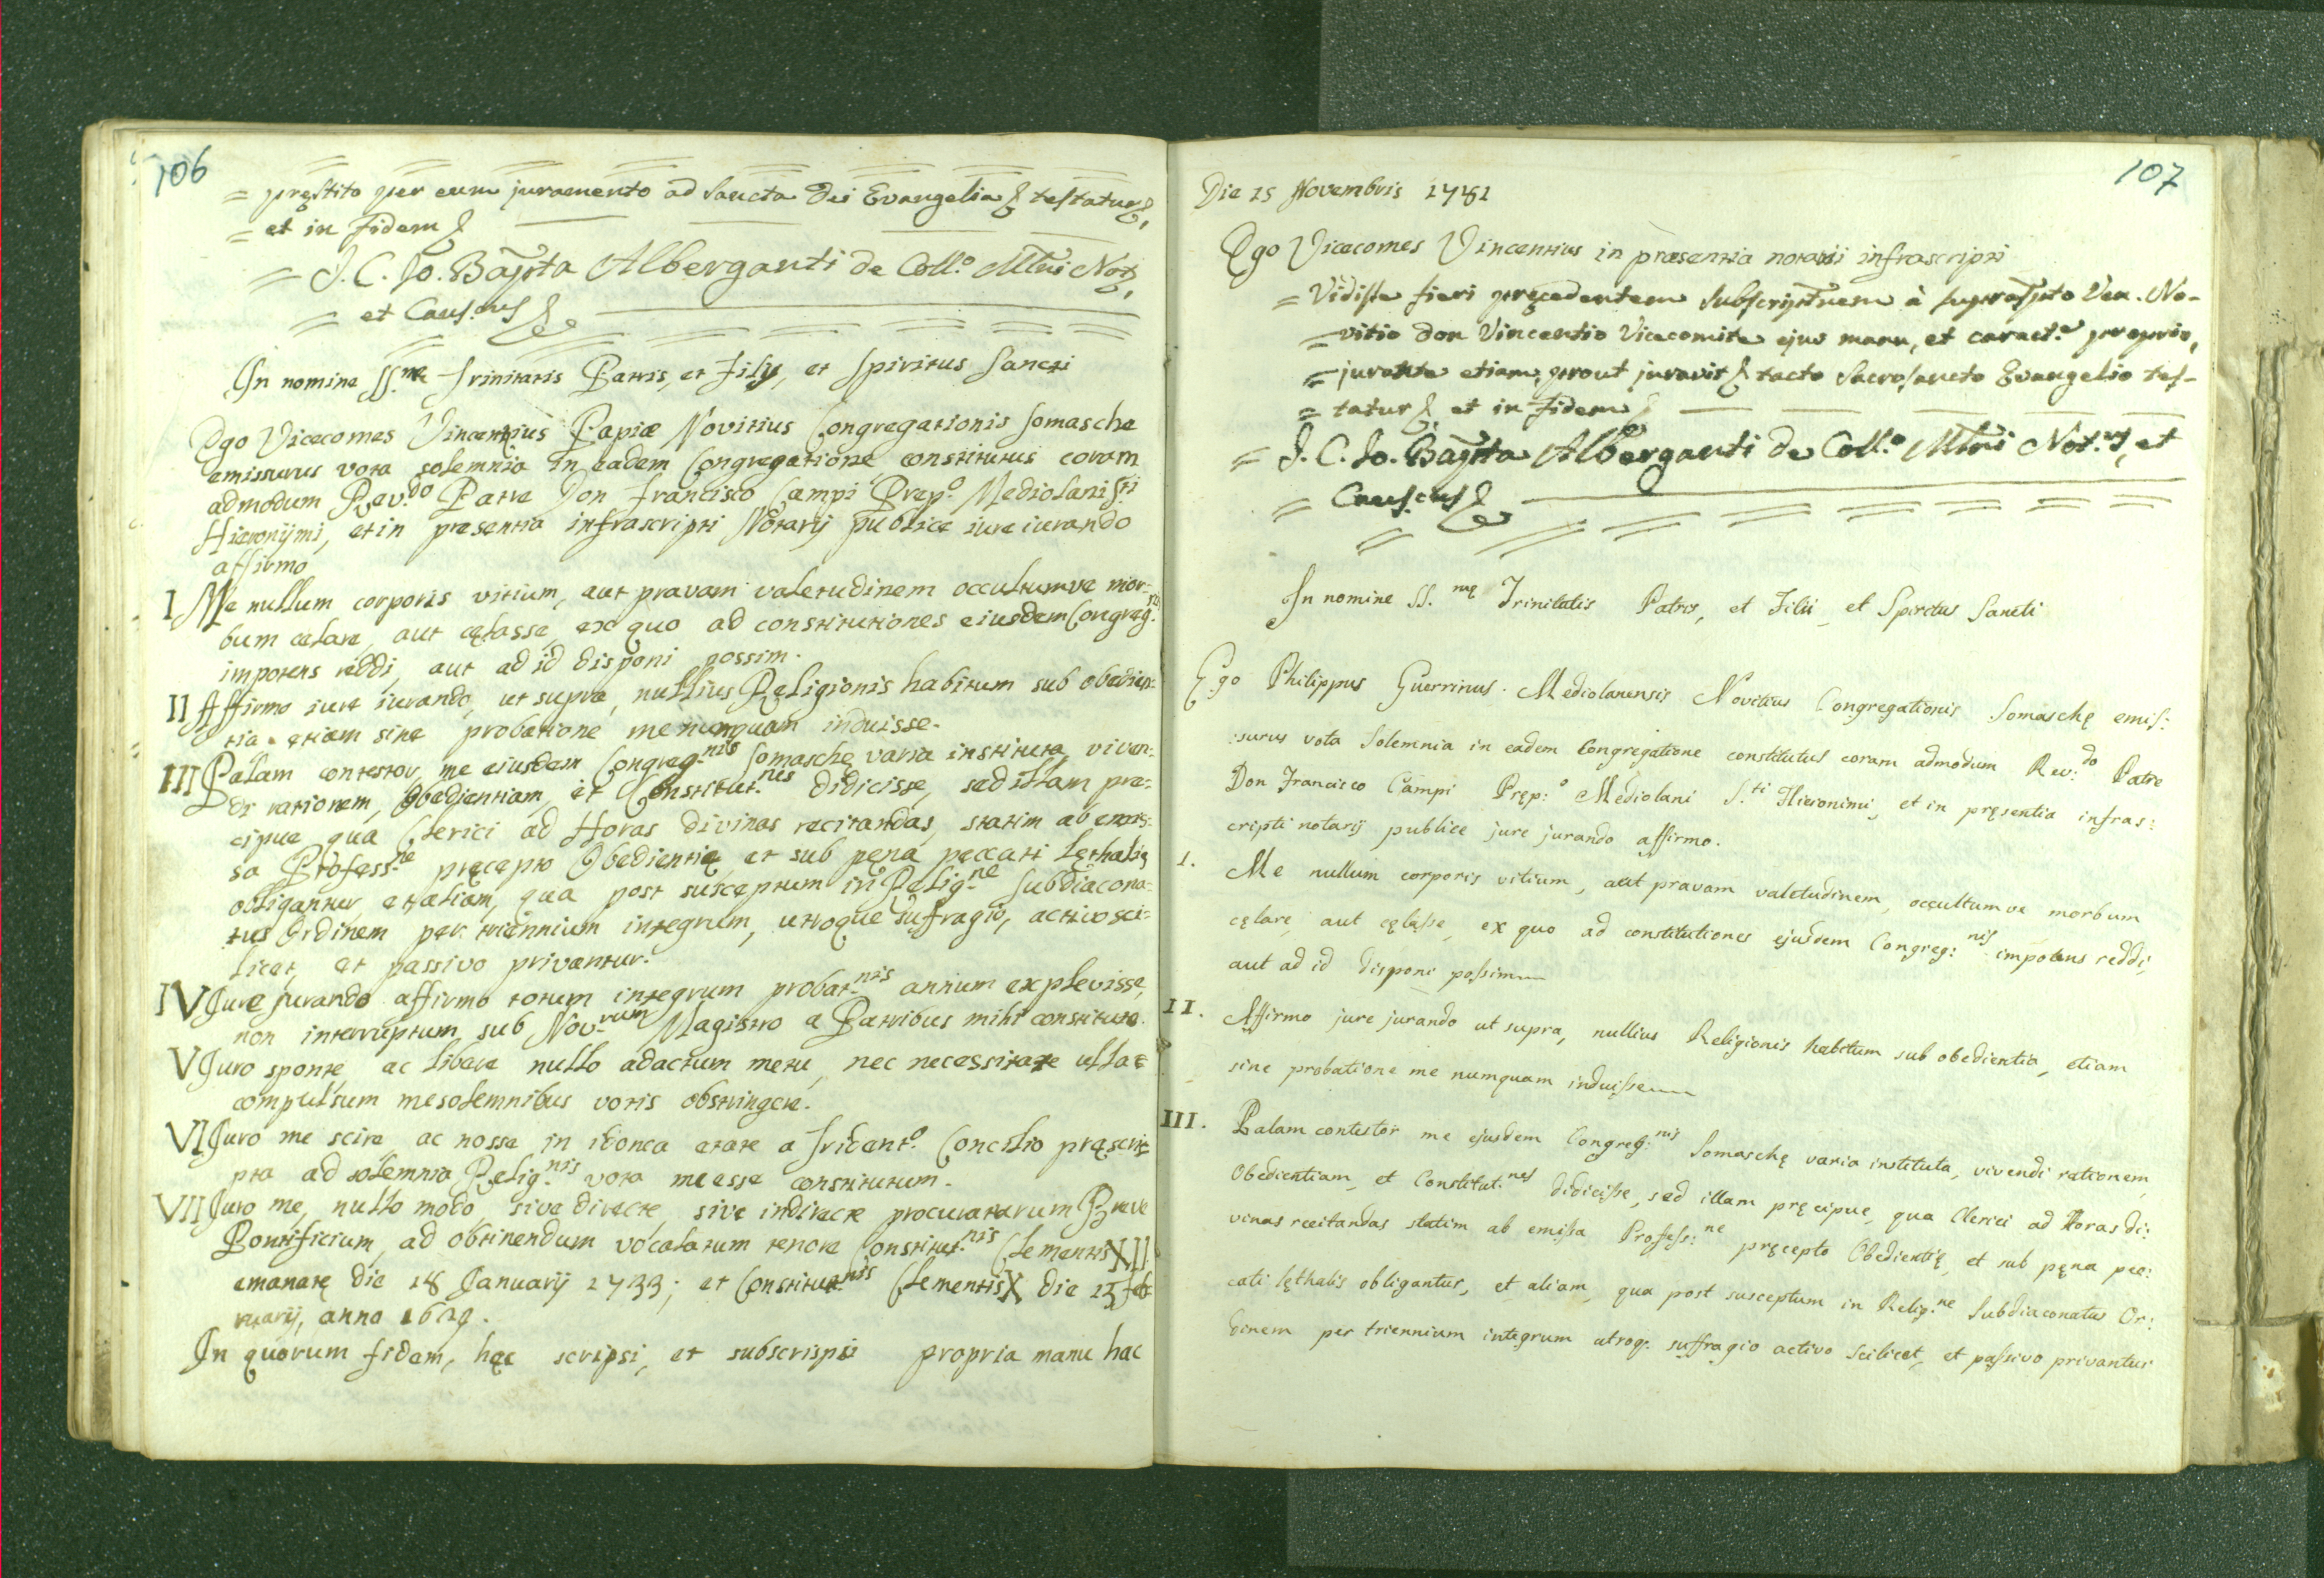 106
= pręstito per eum juramento ad Sancta Dei Evangelia & testatur &,
= et in fidem &
= J. C. Jo. Bapta Alberganti de Coll.o Mlni Not.
= et Caus.cus &
In nomine SS.me Trinitatis Patris, et Filij, et Spiritus Sancti
Ego Vicecomes Vincentius Papiæ Novitius Congregationis Somasche
emissurus vota solemnia in eadem Congregatione constitutus coram
admodum Rev.do Patre Don Francisco Campi Prep.o Mediolani S.ti
Hieronijmi, et in presentia infrascripti Notarij publice iure iurando
affirmo
I Me nullum corporis vitium, aut pravam valetudinem occultumve mor-
bum celare, aut cęlasse, ex quo ad constitutiones eiusdem Congreg.
impotens reddi, aut ad id disponi possim.
II Affirmo iure iurando, ut supra, nullius Religionis habitum sub obedien=
tia etiam sine probatione me numquam induisse.
III Palam contestor me eiusdem Congreg.nis Somaschę varia instituta, viven:
di rationem, Obedientiam, et Constitut.nes didicisse, sed illam pre:
cipue qua Clerici ad Horas divinas recitandas, statim ab emis:
sa Profess.ne pręcepto Obedientię, et sub pęna peccati lęthalis
obligantur, et aliam, qua post susceptum in Relig.ne Subdiacona:
tus Ordinem per triennium integrum, utroque suffragio, activo sci:
licet, et passivo privantur.
IV Jure jurando affirmo totum integrum probat.nis annum explevisse,
non interruptum sub Nov.rum Magistro a Patribus mihi constituto.
V Juro sponte, ac libere nullo adactum metu, nec necessitate ulla
compulsum me solemnibus votis obstringere.
VI Juro me scire, ac nosse in idonea etate a Trident.o Concilio pręscri
pta ad solemnia Relig.nis vota me esse constitutum.
VII Juro me, nullo modo, sive directe, sive indirecte procuraturum Breve
Pontificium, ad obtinendum vocalatum tenore Constitut.nis Clementis XII
emanatę die 18 Januarij 1733; et Constitut.nis Clementis X die 15 Feb
ruarij, anno 1629.
In quorum fidem, hęc scripsi, et subscripsi propria manu hac
107
Die 15 Novembris 1781
Ego Vicecomes Vincentius in præsentia notarii infrascripti
= Vidisse fieri pręcedentem Subscriptionem à suprascripto Ven. No-
= vitio Don Vincentio Vicecomite ejus manu, et caract.e proprio,
= jurante etiam, prout juravit & tacto Sacrosancto Evangelio tes-
= tatur & et in fidem &
= J. C. Jo. Bapta Alberganti de Coll.o Mlni Not.us, et
= Caus.cus &
In nomine SS.mę Trinitatis Patris, et Filii, et Spiritus Sancti
Ego Philippus Guerrinus Mediolanensis Novitius Congregationis Somaschę emis:
:surus vota Solemnia in eadem Congregatione constitutus coram admodum Rev:do Patre
Don Francisco Campi Pręp:o Mediolani S.ti Hieronimi, et in pręsentia infras:
cripti notarij publice jure jurando affirmo.
1. Me nullum corporis vitium, aut pravam valetudinem, occultumve morbum
cęlare, aut cęlasse, ex quo ad constitutiones ejusdem Congreg:nis impotens reddi,
aut ad id disponi possim
II. Affirmo jure jurando ut supra, nullius Religionis habitum sub obedientia, etiam
sine probatione me numquam induisse
III. Palam contestor me ejusdem Congreg:nis Somaschę varia instituta, vivendi rationem,
Obedientiam, et Constitut:nes didicisse, sed illam pręcipue, qua Clerici ad Horas di:
vinas recitandas statim ab emissa Profess:ne pręcepto Obedientię, et sub pęna pec:
cati lęthalis obligantur, et aliam, qua post susceptum in Relig.ne Subdiaconatus Or:
dinem per triennium integrum utroq. suffragio activo scilicet, et passivo privantur